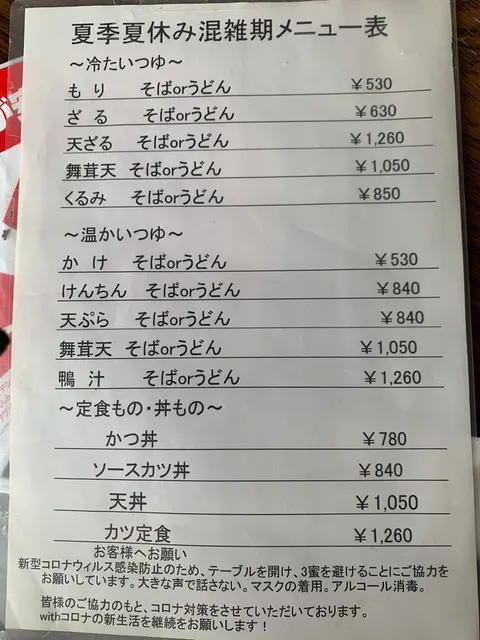 夏季夏休み混雑期メニュー表
～冷たいつゆ～
もり そばorうどん ￥530
ざる そばorうどん ￥630
天ざる そばorうどん ￥1,260
舞茸天 そばorうどん ￥1,050
くるみ そばorうどん ￥850
～温かいつゆ～
かけ そばorうどん ￥530
けんちん そばorうどん ￥840
天ぷら そばorうどん ￥840
舞茸天 そばorうどん ￥1,050
鴨汁 そばorうどん ￥1,260
～定食もの・丼もの～
かつ丼 ￥780
ソースカツ丼 ￥840
天丼 ￥1,050
カツ定食 ￥1,260
お客様へお願い
新型コロナウィルス感染防止のため、テーブルを開け、3蜜を避けることにご協力を
お願いしています。大きな声で話さない。マスクの着用。アルコール消毒。
皆様のご協力のもと、コロナ対策をさせていただいております。
withコロナの新生活を継続をお願いします！